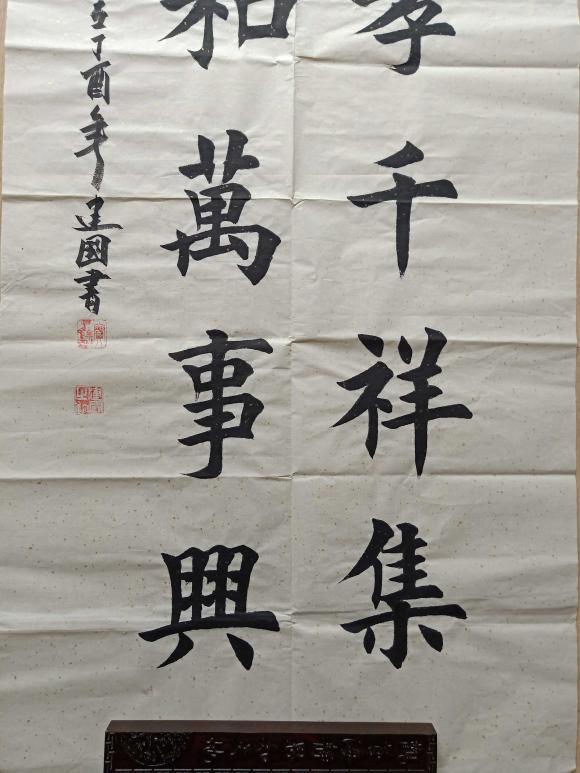 孝千祥集
和萬事興
丁酉年建國書